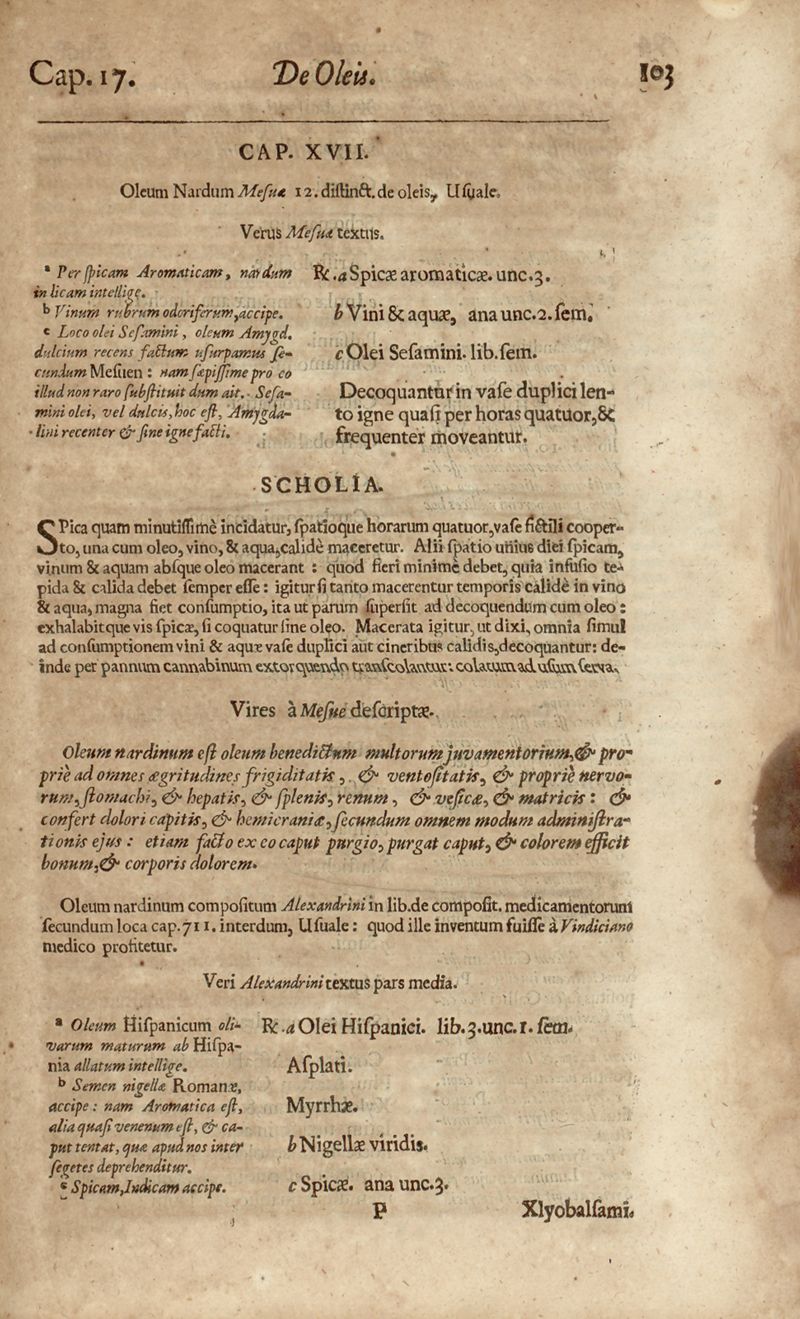 Cap. 17. De Oleis. 103
CAP. XVII.
Oleum Nardum Mesuæ 12. distinct. de oleis, Usuale.
Verus Mesuæ textus.
a Per spicam Aromaticam, nardum
in licam intellige.
b Vinum rubrum odoriferum, accipe.
c Loco olei Sesamini, oleum Amygd.
dulcium recens factum usurpamus se-
cundum Mesuen : nam sæpissime pro eo
illud non raro substituit dum ait. Sesa-
mini olei, vel dulcis, hoc est, Amygda-
lini recenter & sine igne facti.
℞. a Spicæ aromaticæ. unc. 3.
b Vini & aquæ, ana unc. 2. sem.
c Olei Sesamini. lib. sem.
Decoquantur in vase duplici len-
to igne quasi per horas quatuor, &
frequenter moveantur.
SCHOLIA.
SPica quam minutissimè incidatur, spatioque horarum quatuor, vase fictili cooper-
to, una cum oleo, vino, & aqua, calidè maceretur. Alii spatio unius diei spicam,
vinum & aquam absque oleo macerant : quod fieri minimè debet, quia infusio te-
pida & calida debet semper esse : igitur si tanto macerentur temporis calidè in vino
& aqua, magna fiet consumptio, ita ut parum supersit ad decoquendum cum oleo :
exhalabitque vis spicæ, si coquatur sine oleo. Macerata igitur, ut dixi, omnia simul
ad consumptionem vini & aquæ vase duplici aut cineribus calidis, decoquantur: de-
inde per pannum cannabinum extorquendo transcolantur: colatum ad usum serva.
Vires à Mesue descriptæ.
Oleum nardinum est oleum benedictum multorum juvamentorium, & pro-
priè ad omnes ægritudines frigiditatis, & ventositatis, & propriè nervo-
rum, stomachi, & hepatis, & splenis, renum, & vesicæ, & matricis : &
confert dolori capitis, & hemicraniæ, secundum omnem modum administra-
tionis ejus : etiam facto ex eo caput purgio, purgat caput, & colorem efficit
bonum, & corporis dolorem.
Oleum nardinum compositum Alexandrini in lib. de composit. medicamentorum
secundum loca cap. 711. interdum, Usuale : quod ille inventum fuisse à Vindiciano
medico profitetur.
Veri Alexandrini textus pars media.
a Oleum Hispanicum oli-
varum maturum ab Hispa-
nia allatum intellige.
b Semen nigellæ Romanæ,
accipe : nam Aromatica est,
alia quasi venenum est, & ca-
put tentat, quæ apud nos inter
segetes deprehenditur.
c Spicam, Indicam accipe.
℞. a Olei Hispanici. lib. 3. unc. 1. sem.
Asplati.
Myrrhæ.
b Nigellæ viridis.
c Spicæ. ana unc. 3.
P Xlyobalsami.